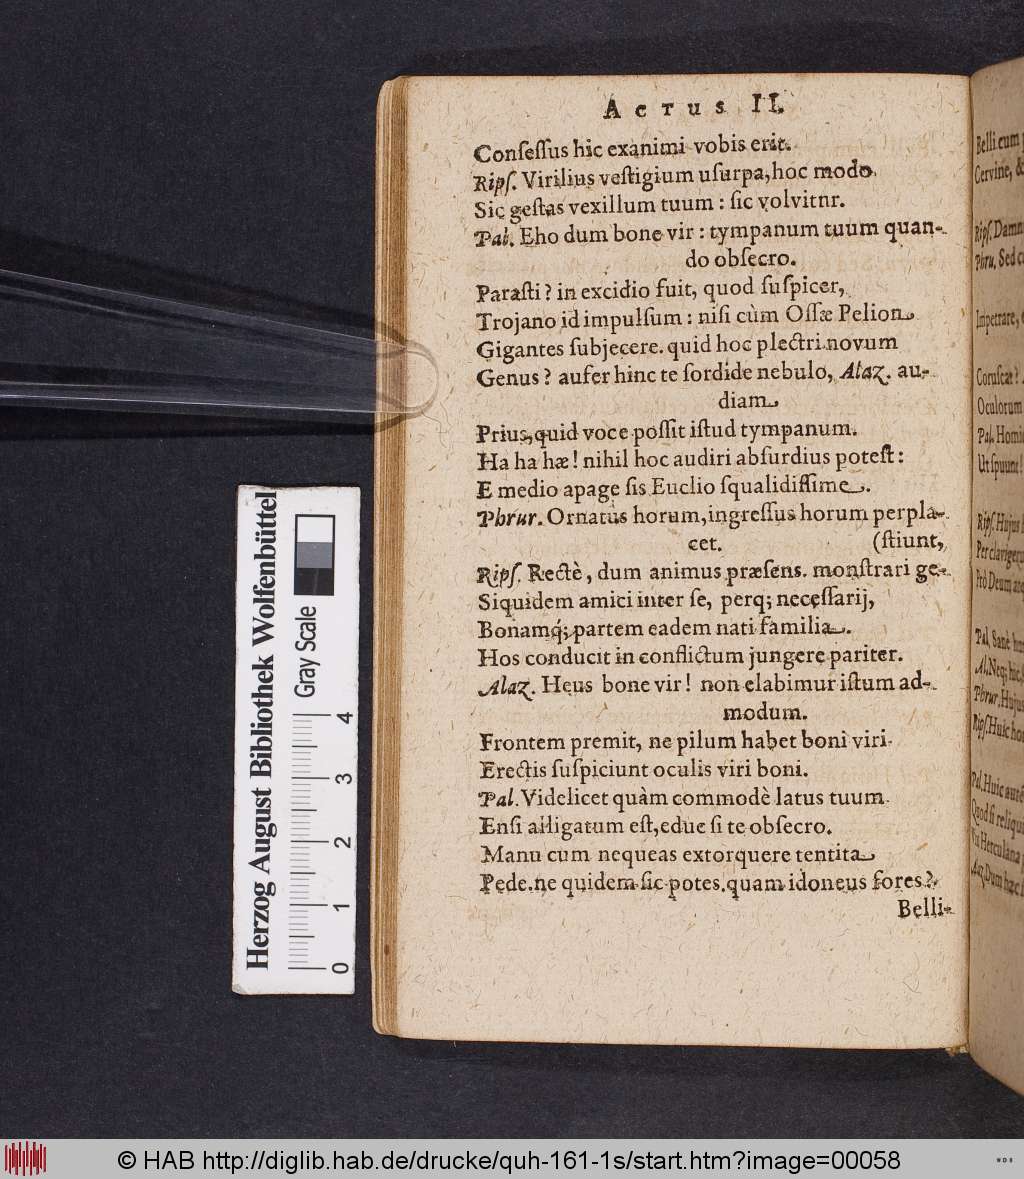 Actus II.
Conſeſſus hic exanimi vobis erit.
Ripſ. Virilius veſtigium uſurpa, hoc modo
Sic geſtas vexillum tuum : ſic volvitnr.
Pal. Eho dum bone vir : tympanum tuum quan-
do obſecro.
Paraſti? in excidio fuit, quod ſuſpicer,
Trojano id impulſum : niſi cùm Oſſæ Pelion
Gigantes ſubjecere. quid hoc plectri novum
Genus? aufer hinc te ſordide nebulo, Alaz. au-
diam
Prius, quid voce poſſit iſtud tympanum.
Ha ha hæ! nihil hoc audiri abſurdius poteſt :
E medio apage ſis Euclio ſqualidiſſime.
Phrur. Ornatus horum, ingreſſus horum perpla-
cet. (ſtiunt,
Ripſ. Rectè, dum animus præſens. monſtrari ge-
Siquidem amici inter ſe, perq; neceſſarij,
Bonamq́; partem eadem nati familia.
Hos conducit in conflictum jungere pariter.
Alaz. Heus bone vir! non elabimur iſtum ad-
modum.
Frontem premit, ne pilum habet boni viri
Erectis ſuſpiciunt oculis viri boni.
Pal. Videlicet quàm commodè latus tuum
Enſi alligatum eſt, edue ſi te obſecro.
Manu cum nequeas extorquere tentita
Pede. ne quidem ſic potes. quam idoneus fores?
Belli-
Belli cum
Cervine, &
Ripſ. Damn
Phru. Sed
Impetrare,
Coruſcat?
Oculorum
Pal. Homi
Ut ſpuunt!
Ripſ. Hujus
Per clavigeru
Prò Deum
Pal. Sanè
Al. Neq; hic
Phrur. Huju
Ripſ. Huic ho
Pal. Huic
Quod ſi reliqu
Herculana
Dum hæc
Herzog August Bibliothek Wolfenbüttel
Gray Scale
0 1 2 3 4
© HAB http://diglib.hab.de/drucke/quh-161-1s/start.htm?image=00058